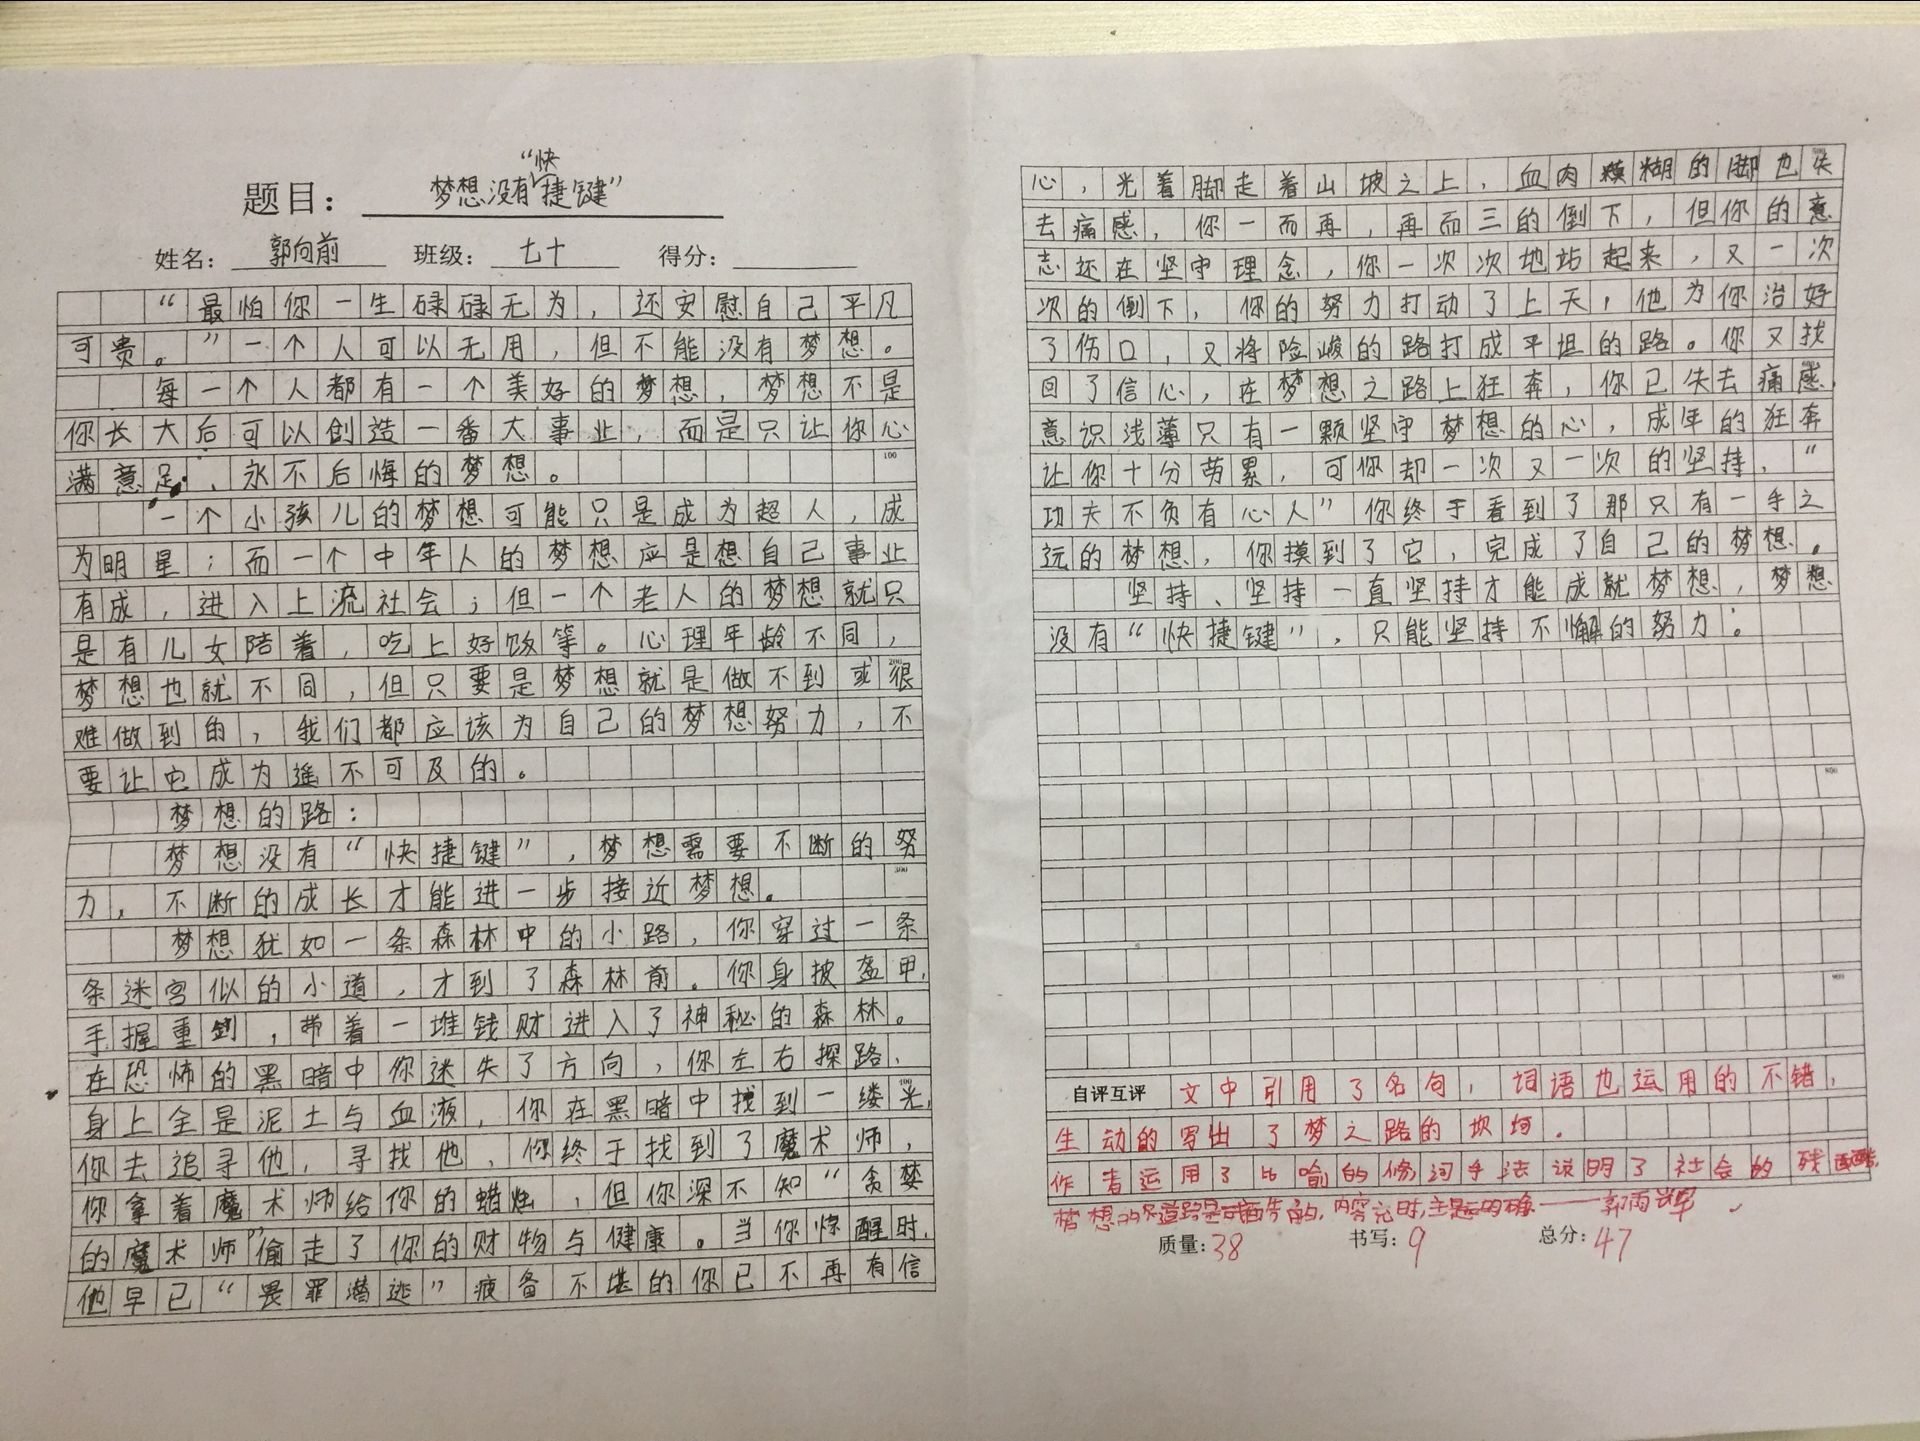 题目：梦想没有“快捷键”
姓名：郭向前 班级：七十 得分：
“最怕你一生碌碌无为，还安慰自己平凡
可贵。”一个人可以无用，但不能没有梦想。
每一个人都有一个美好的梦想，梦想不是
你长大后可以创造一番大事业，而是只让你心
满意足，永不后悔的梦想。
100
一个小孩儿的梦想可能只是成为超人，成
为明星；而一个中年人的梦想应是想自己事业
有成，进入上流社会；但一个老人的梦想就只
是有儿女陪着，吃上好饭等。心理年龄不同，
梦想也就不同，但只要是梦想就是做不到或很
200
难做到的，我们都应该为自己的梦想努力，不
要让它成为遥不可及的。
梦想的路：
梦想没有“快捷键”，梦想需要不断的努
力，不断的成长才能进一步接近梦想。
300
梦想犹如一条森林中的小路，你穿过一条
条迷宫似的小道，才到了森林前。你身披盔甲，
手握重剑，带着一堆钱财进入了神秘的森林。
在恐怖的黑暗中你迷失了方向，你左右探路，
身上全是泥土与血液，你在黑暗中找到一缕光，
400
你去追寻他，寻找他，你终于找到了魔术师，
你拿着魔术师给你的蜡烛，但你深不知“贪婪
的魔术师”偷走了你的财物与健康。当你惊醒时，
他早已“畏罪潜逃”疲备不堪的你已不再有信
心，光着脚走着山坡之上，血肉模糊的脚也失
去痛感，你一而再，再而三的倒下，但你的意
志还在坚守理念，你一次次地站起来，又一次
次的倒下，你的努力打动了上天，他为你治好
了伤口，又将险峻的路打成平坦的路。你又找
回了信心，在梦想之路上狂奔，你已失去痛感，
意识浅薄只有一颗坚守梦想的心，成年的狂奔
让你十分劳累，可你却一次又一次的坚持，“
功夫不负有心人”你终于看到了那只有一手之
远的梦想，你摸到了它，完成了自己的梦想。
坚持、坚持一直坚持才能成就梦想，梦想
没有“快捷键”，只能坚持不懈的努力。
800
900
自评互评 文中引用了名句，词语也运用的不错，
生动的写出了梦之路的坎坷。
作者运用了比喻的修词手法说明了社会的残酷，
梦想的道路是
质量：38 书写：9 总分：47